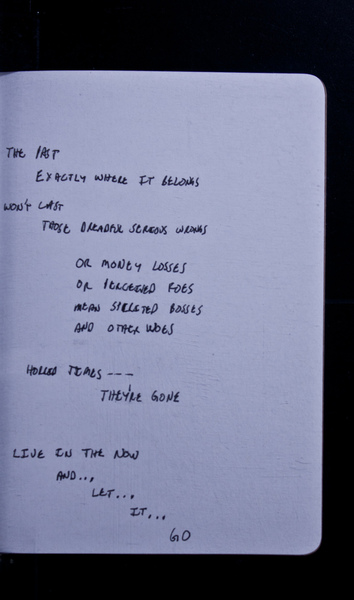 THE PAST
EXACTLY WHERE IT BELONGS
WON'T LAST
THOSE DREADFUL SERIOUS WRONGS
OR MONEY LOSSES
OR PERCEIVED FOES
MEAN SPIRITED BOSSES
AND OTHER WOES
TIMES ---
THEY'RE GONE
LIVE IN THE NOW
AND...
LET...
IT...
GO